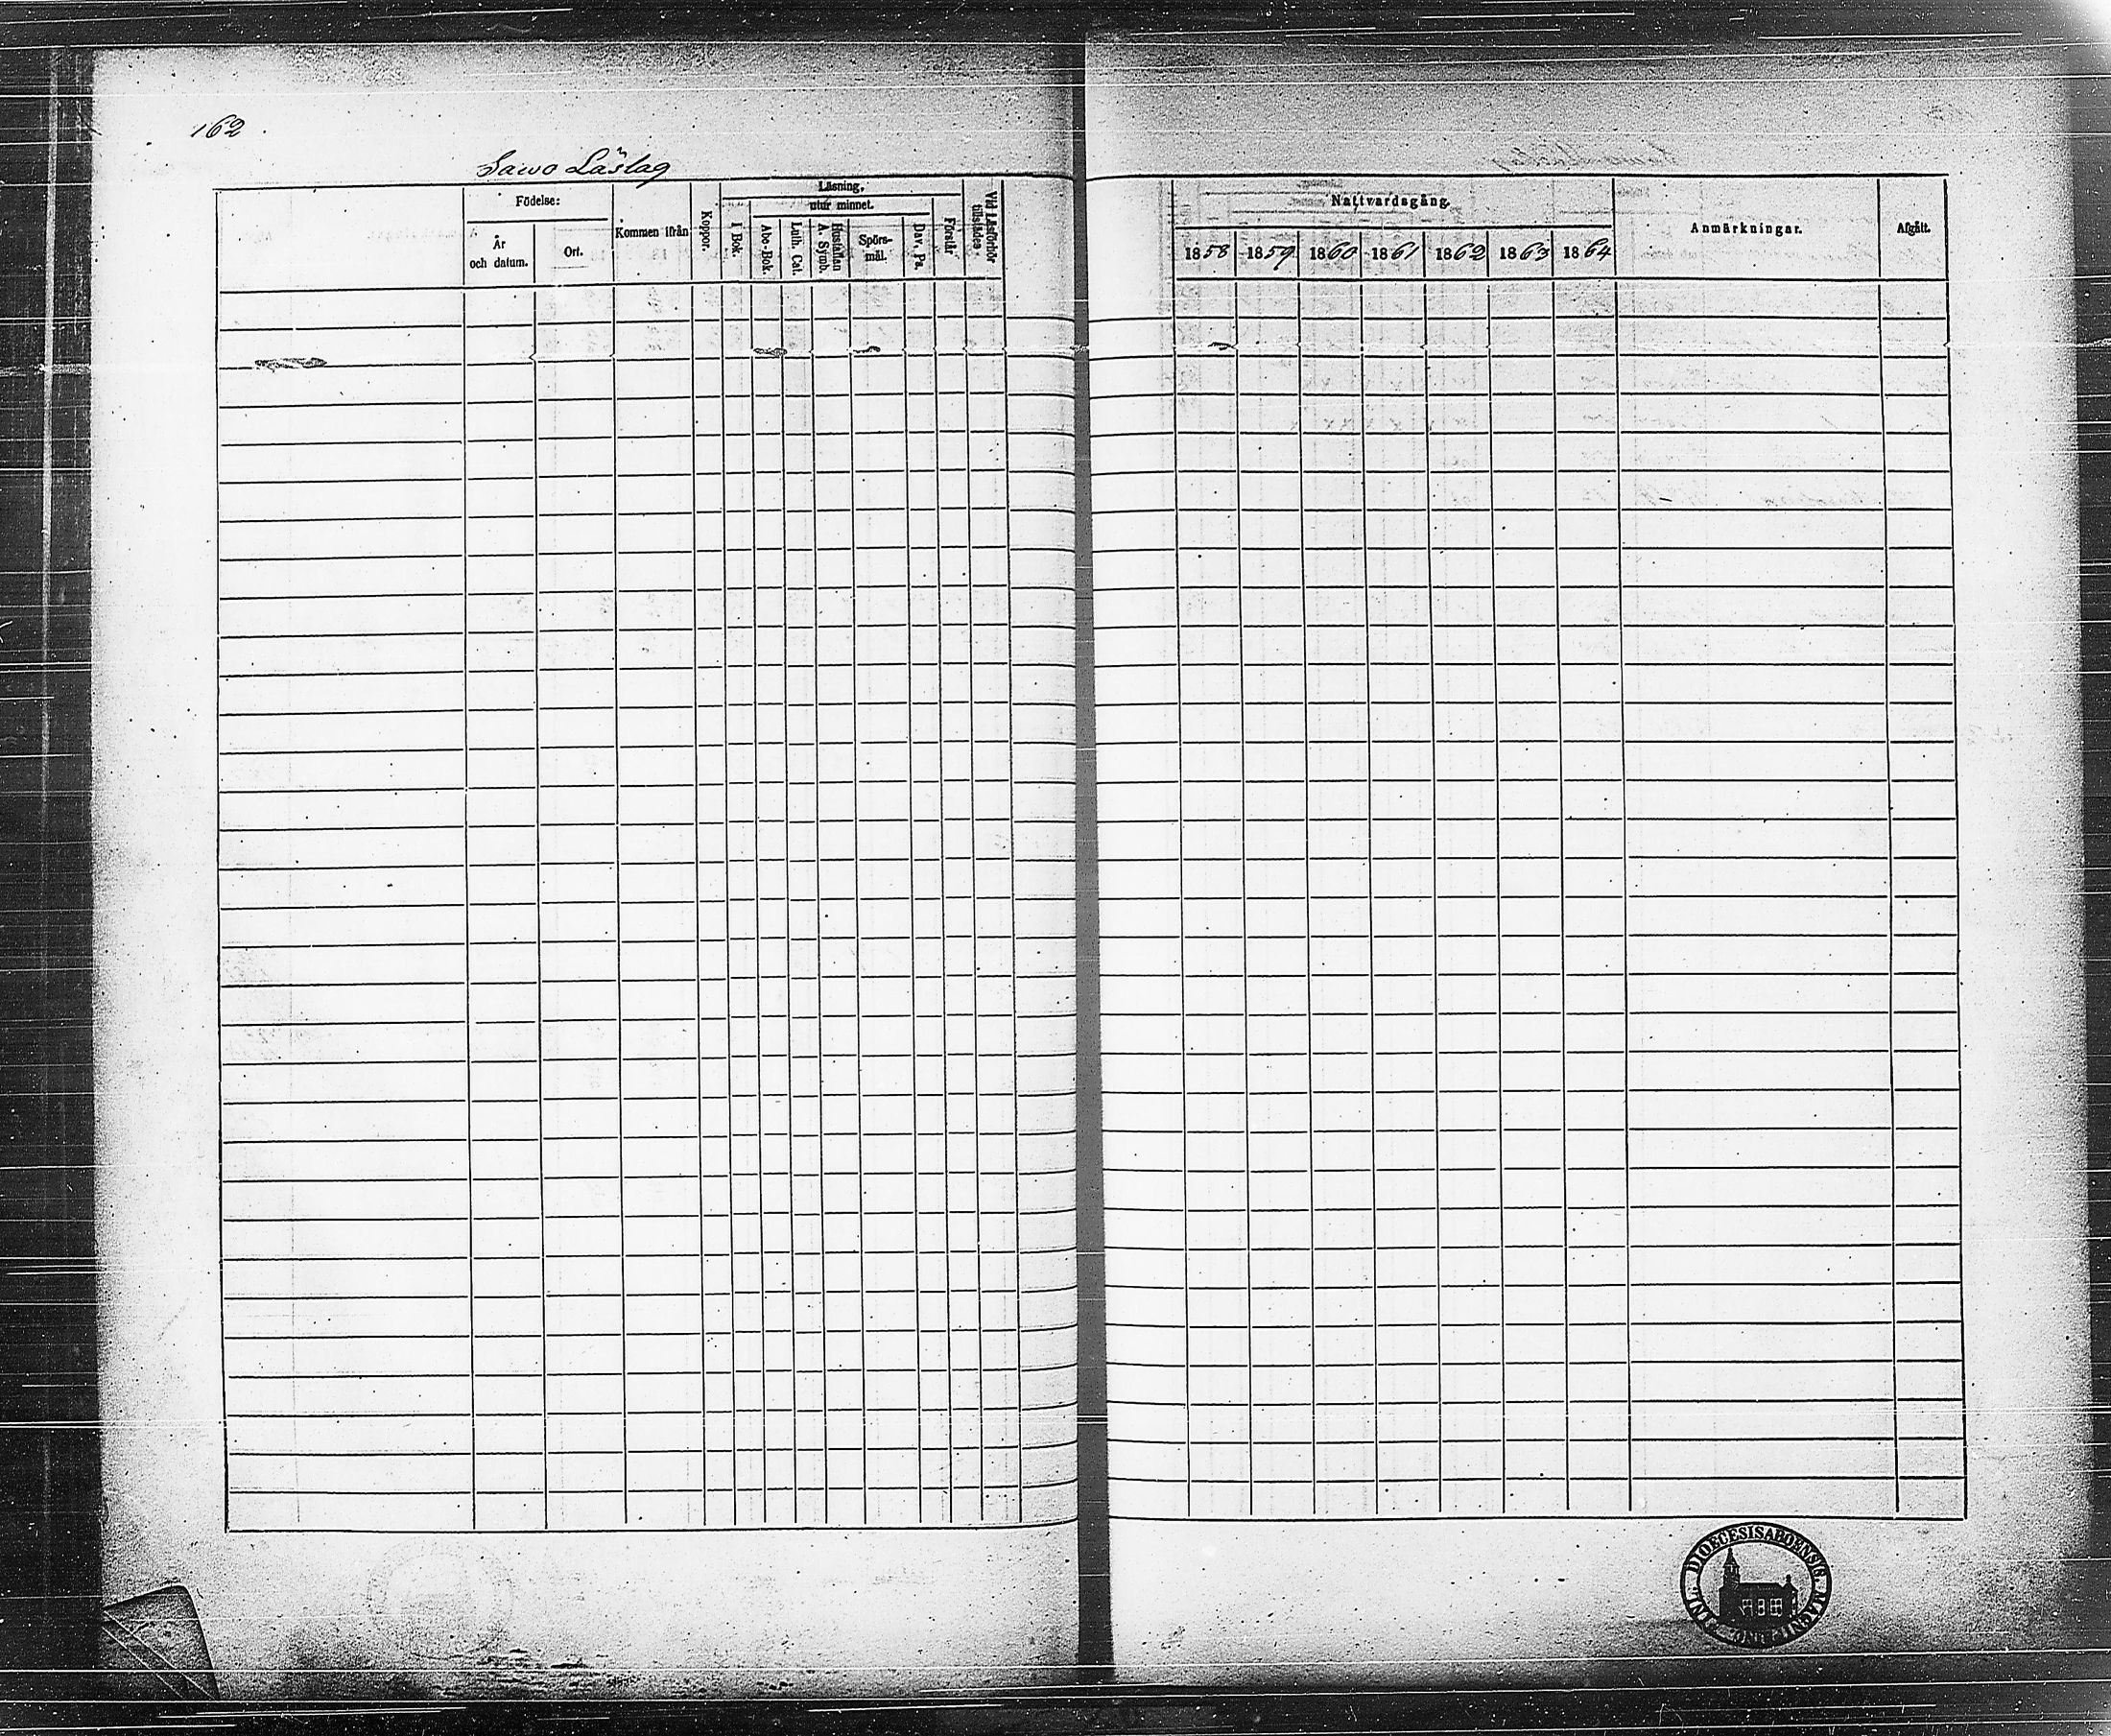 162
Sawo Läslag
Födelse:
År
och datum.
Ort.
Kommen ifrån
Koppor.
Läsning,
utur minnet.
I Bok.
Abc-Bok.
Luth. Cat.
Hustaflan
A. Symb.
Spörs-
mål.
Dav. Ps.
Förstår
Vid Läsförhör
tillstädes.
Nattvardsgång.
1858 1859 1860 1861 1862 1863 1864
Anmärkningar.
Afgått.
DIOECESIS ABOENSIS